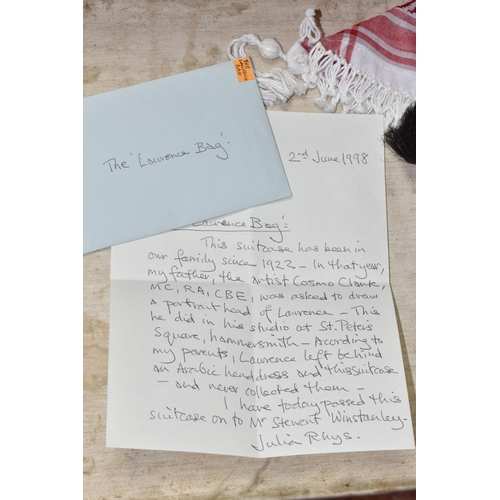 The 'Lawrence Bag'.
2nd June 1998
Lawrence Bag':
This suitcase has been in
our family since 1922 - In that year,
my father, the artist Cosmo Clark,
MC, RA, CBE, was asked to draw
a portrait head of Lawrence - This
he did in his studio at St. Peter's
Square, Hammersmith - According to
my parents, Lawrence left behind
an Arabic headdress and this suitcase
- and never collected them -
I have today passed this
suitcase on to Mr Stewart Winstanley.
Julia Rhys.